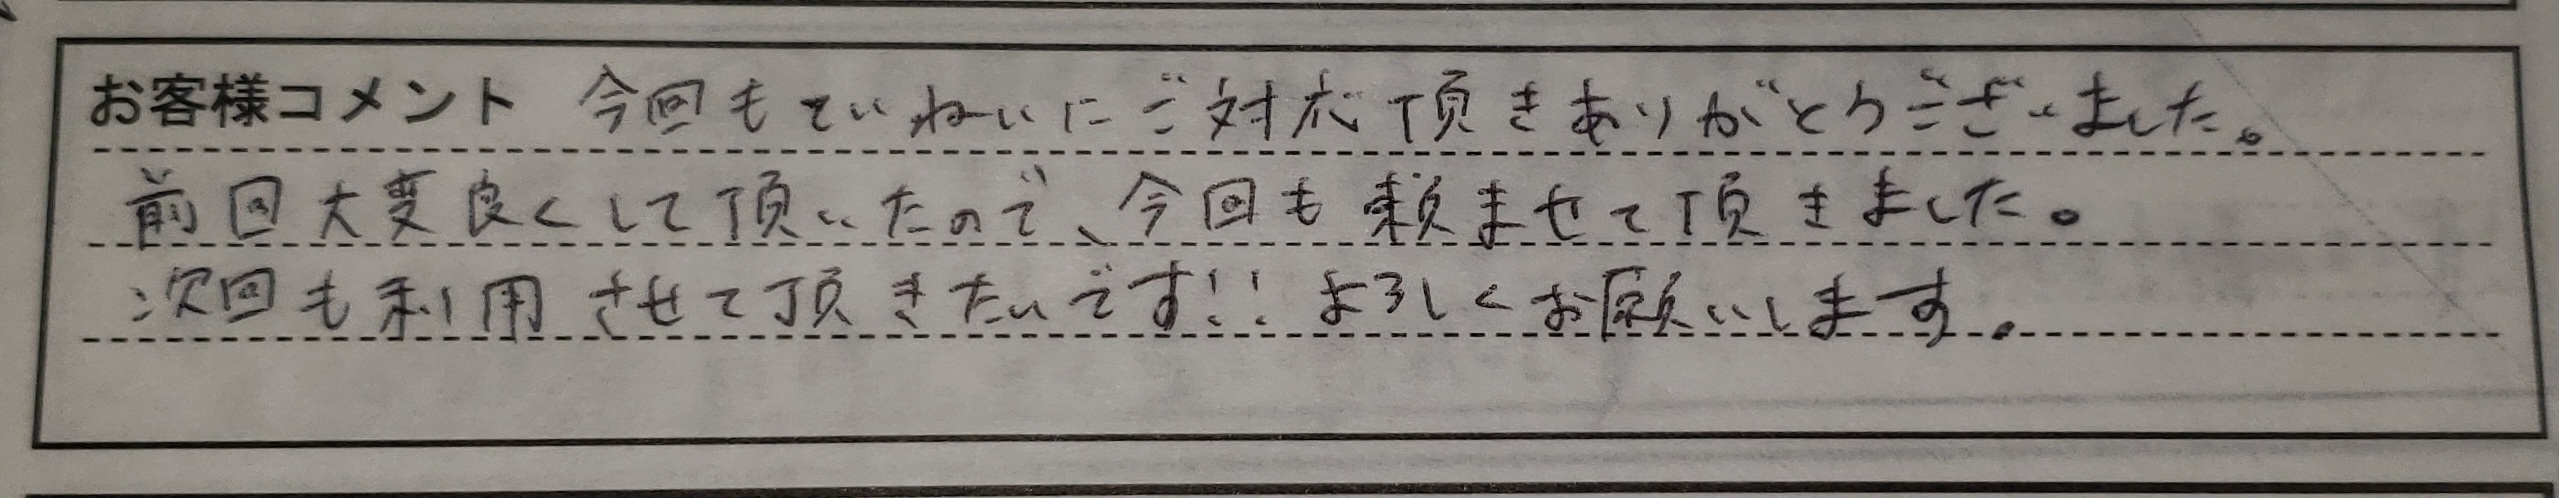 お客様コメント 今回もていねいにご対応頂きありがとうございました。
前回大変良くして頂いたので、今回も頼ませて頂きました。
次回も利用させて頂きたいです!! よろしくお願いします。